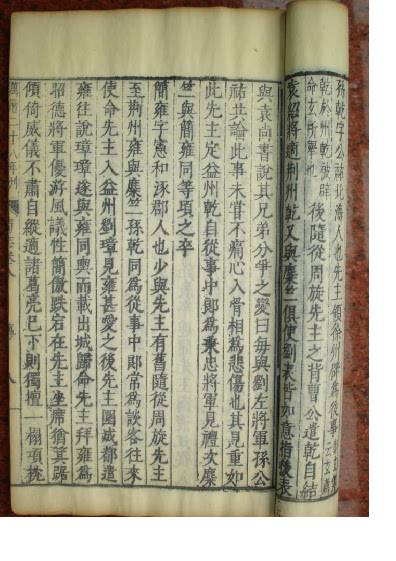 孫乾字公祐北海人也先主領徐州辟為從事
後隨從周旋先主之背曹公遣乾自結
袁紹將適荊州乾又與麋竺俱使劉表皆如意指後表
與袁尚書說其兄弟分爭之變曰每與劉左將軍孫公
祐共論此事未嘗不痛心入骨相為悲傷也其見重如
此先主定益州乾自從事中郎為秉忠將軍見禮次麋
竺與簡雍同等頃之卒
簡雍字憲和涿郡人也少與先主有舊隨從周旋先主
至荊州雍與麋竺孫乾同為從事中郎常為談客往來
使命先主入益州劉璋見雍甚愛之後先主圍成都遣
雍往說璋璋遂與雍同輿而載出城歸命先主拜雍為
昭德將軍優游風議性簡傲跌宕在先主座席猶箕踞
傾倚威儀不肅自縱適諸葛亮已下則獨擅一榻項枕
萬曆二十八年刊